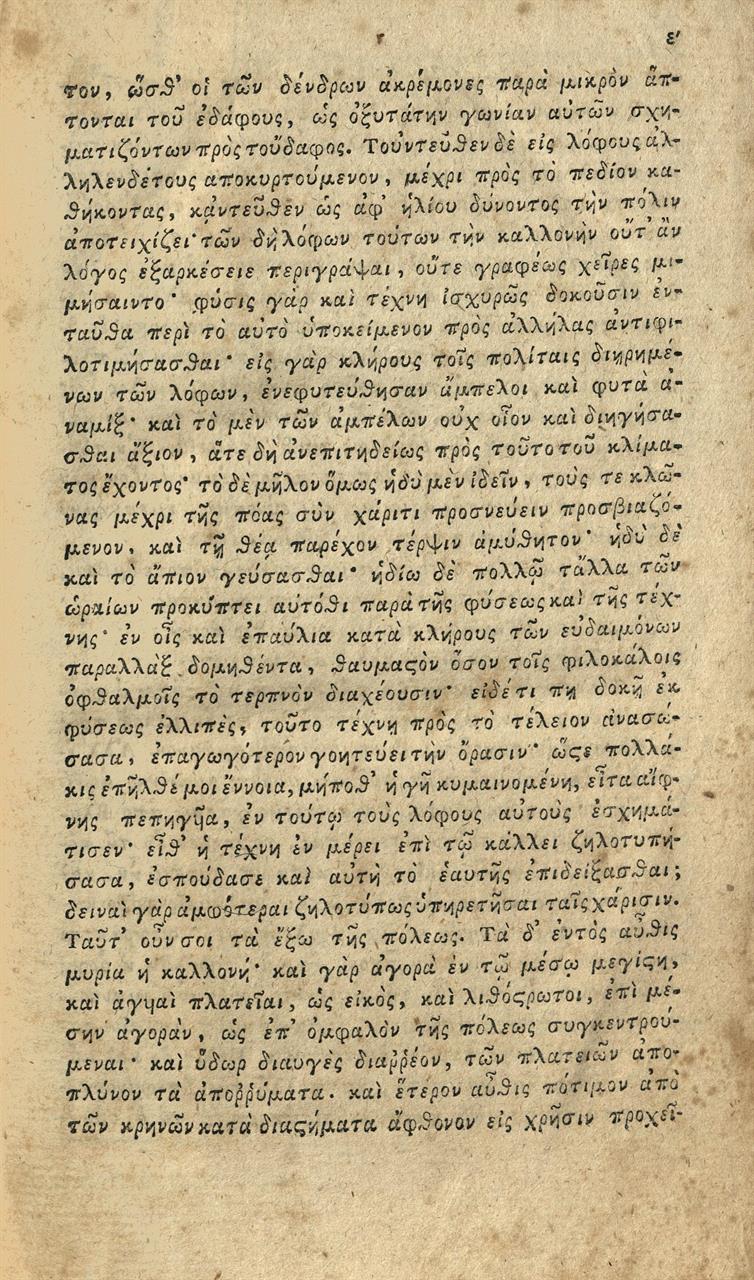 ε'
τον, ὥσθ' οἱ τῶν δένδρων ἀκρέμονες παρὰ μικρὸν ἅπ-
τονται τοῦ ἐδάφους, ὡς ὀξυτάτην γωνίαν αὐτῶν σχη-
ματιζόντων πρὸς τοὔδαφος. Τοὐντεῦθεν δὲ εἰς λόφους ἀλ-
ληλενδέτους ἀποκυρτούμενον, μέχρι πρὸς τὸ πεδίον κα-
θήκοντας, κἀντεῦθεν ὡς ἀφ' ἡλίου δύνοντος τὴν πόλιν
ἀποτειχίζει· τῶν δὴ λόφων τούτων τὴν καλλονὴν οὔτ' ἂν
λόγος ἐξαρκέσειε περιγράψαι, οὔτε γραφέως χεῖρες μι-
μήσαιντο· φύσις γὰρ καὶ τέχνη ἰσχυρῶς δοκοῦσιν ἐν-
ταῦθα περὶ τὸ αὐτὸ ὑποκείμενον πρὸς ἀλλήλας ἀντιφι-
λοτιμήσασθαι· εἰς γὰρ κλήρους τοῖς πολίταις διῃρημέ-
νων τῶν λόφων, ἐνεφυτεύθησαν ἄμπελοι καὶ φυτὰ ἀ-
ναμίξ· καὶ τὸ μὲν τῶν ἀμπέλων οὐχ οἷον καὶ διηγήσα-
σθαι ἄξιον, ἅτε δὴ ἀνεπιτηδείως πρὸς τοῦτο τοῦ κλίμα-
τος ἔχοντος· τὸ δὲ μῆλον ὅμως ἡδὺ μὲν ἰδεῖν, τούς τε κλῶ-
νας μέχρι τῆς πόας σὺν χάριτι προσνεύειν προσβιαζό-
μενον, καὶ τῇ θέᾳ παρέχον τέρψιν ἀμύθητον· ἡδὺ δὲ
καὶ τὸ ἄπιον γεύσασθαι· ἡδίω δὲ πολλῷ τἄλλα τῶν
ὡραίων προκύπτει αὐτόθι παρὰ τῆς φύσεως καὶ τῆς τέχ-
νης· ἐν οἷς καὶ ἐπαύλια κατὰ κλήρους τῶν εὐδαιμόνων
παραλλὰξ δομηθέντα, θαυμαϛὸν ὅσον τοῖς φιλοκάλοις
ὀφθαλμοῖς τὸ τερπνὸν διαχέουσιν· εἰδέ τι πῃ δοκῇ ἐκ
φύσεως ἐλλιπὲς, τοῦτο τέχνῃ πρὸς τὸ τέλειον ἀνασώ-
σασα, ἐπαγωγότερον γοητεύει τὴν ὅρασιν· ὥϛε πολλά-
κις ἐπῆλθέ μοι ἔννοια, μήποθ' ἡ γῆ κυμαινομένη, εἶτα αἴφ-
νης πεπηγῦα, ἐν τούτῳ τοὺς λόφους αὐτοὺς ἐσχημά-
τισεν· εἶθ' ἡ τέχνη ἐν μέρει ἐπὶ τῷ κάλλει ζηλοτυπή-
σασα, ἐσπούδασε καὶ αὐτὴ τὸ ἑαυτῆς ἐπιδείξασθαι;
δειναὶ γὰρ ἀμφότεραι ζηλοτύπως ὑπηρετῆσαι ταῖς χάρισιν.
Ταῦτ' οὖν σοι τὰ ἔξω τῆς πόλεως. Τὰ δ' ἐντὸς αὖθις
μυρία ἡ καλλονή· καὶ γὰρ ἀγορὰ ἐν τῷ μέσῳ μεγίϛη,
καὶ ἀγυιαὶ πλατεῖαι, ὡς εἰκὸς, καὶ λιθόϛρωτοι, ἐπὶ μέ-
σην ἀγορὰν, ὡς ἐπ' ὀμφαλὸν τῆς πόλεως συγκεντρού-
μεναι· καὶ ὕδωρ διαυγὲς διαῤῥέον, τῶν πλατειῶν ἀπο-
πλύνον τὰ ἀποῤῥύματα. καὶ ἕτερον αὖθις πότιμον ἀπὸ
τῶν κρηνῶν κατὰ διαϛήματα ἄφθονον εἰς χρῆσιν προχεῖ-